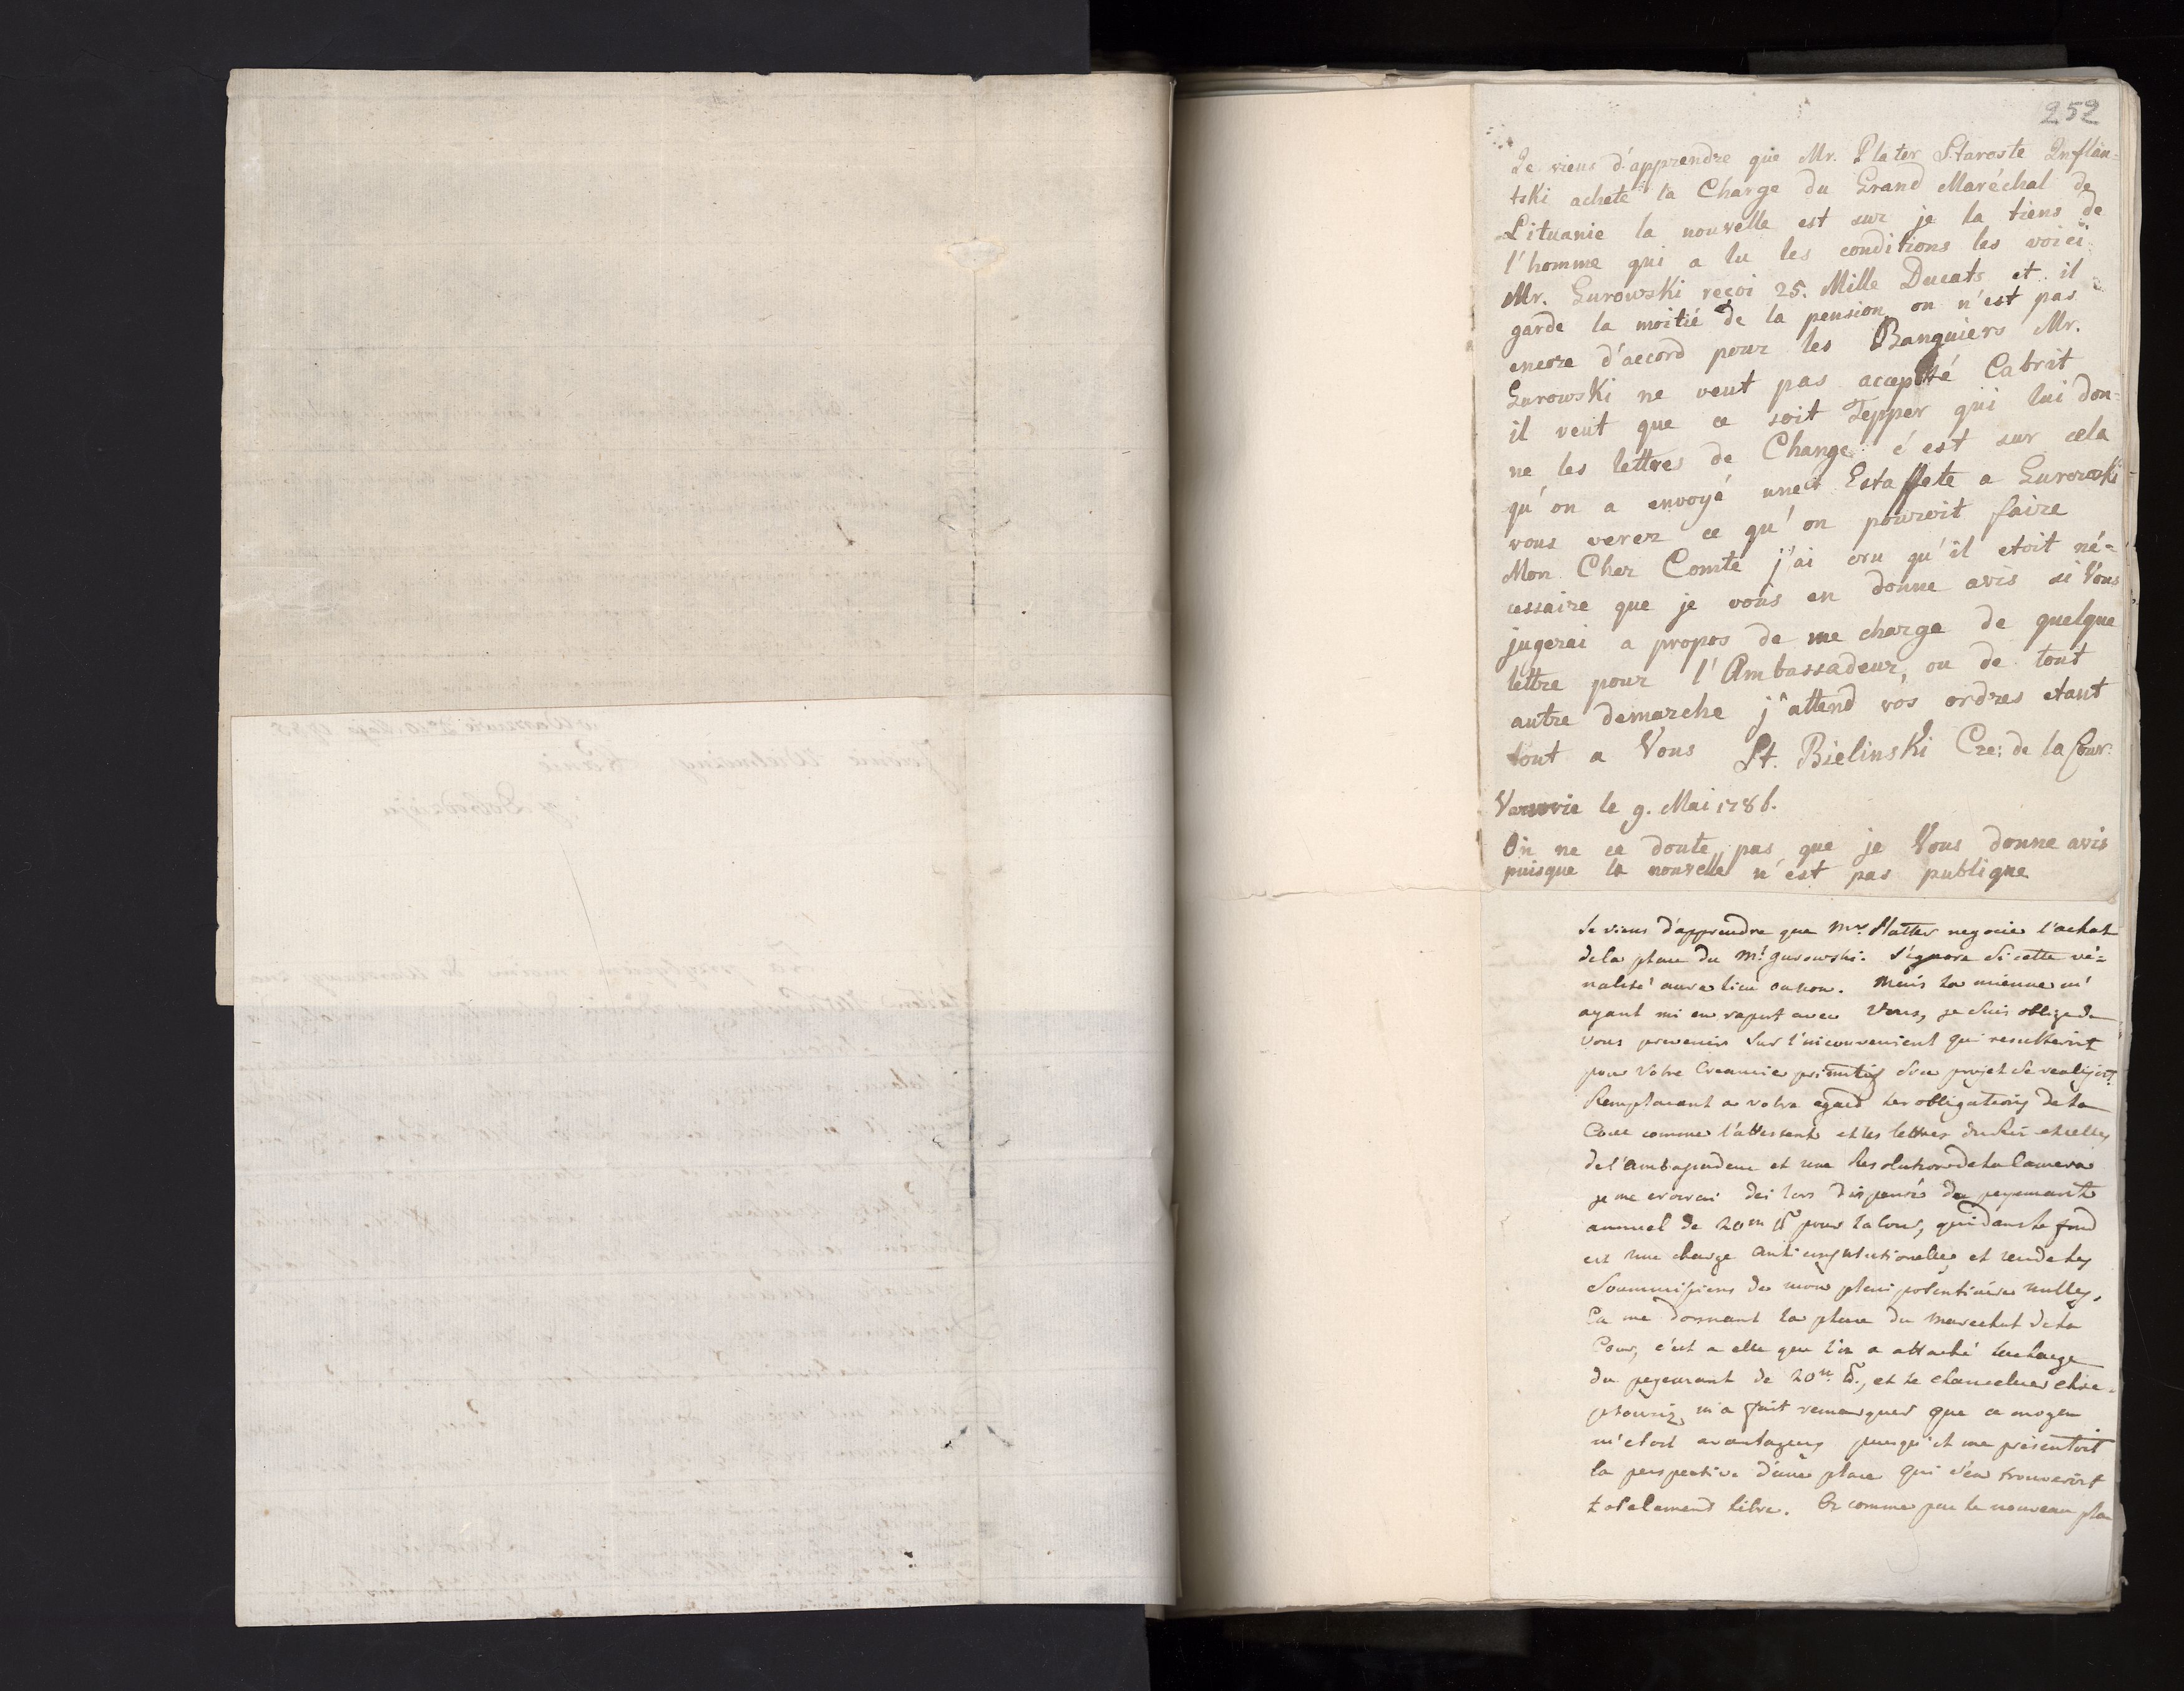 252
Je viens d'apprendre que Mr. Plater Staroste Inflan-
tski achete la Charge du Grand Maréchal de
Lituanie la nouvelle est sur je la tiens de
l'homme qui a lu les conditions les voici
Mr. Gurowski reçoi 25. Mille Ducats et il
garde la moitié de la pension on n'est pas
encore d'accord pour les Banquiers Mr.
Gurowski ne veut pas accepté Cabrit
il veut que ce soit Tepper qui lui don=
ne les lettres de Change c'est sur cela
qu'on a envoyé une Estaffete a Gurowski
vous verez ce qu'on pouroit faire
Mon Cher Comte j'ai cru qu'il etoit né=
cessaire que je vous en donne avis si Vous
jugerai a propos de me charge de quelque
lettre pour l'Ambassadeur, ou de tout
autre demarche j'attend vos ordres etant
tout a Vous St. Bielinski Cze: de la Cour.
Varsovie le 9. Mai 1786.
On ne ce doute pas que je Vous donne avis
puisque la nouvelle n'est pas publique
Je viens d'apprendre que Mr. Platter negocie l'achat
de la place du Ml. Gurowski. J'ignore si cette vé=
nalité aura lieu ou non. Mais la mienne m'
ayant mi en raport avec Vous, je suis obligé de
vous prevenir sur l'inconvenient qui resulteroit
pour Votre Creancie primitif si ce projet se realisoit.
Remplacant a votre egard les obligations de la
Cour comme l'attestent et les lettres du Roi et celles
de l'ambassadeur et une Resolution de la Camera
je me croirai des lors dispensé du payement
annuel de 20m pour la Cour, qui dans le fond
est une charge anticonstitutionelle et rende les
Soummissions de mon plenipotentiaire nulles.
En me donnant la place du Marechal de la
Cour, c'est a elle que l'on a attaché la charge
du payement de 20m., et le chancelier Chre=
ptowicz m'a fait remarquer que ce moyen
m'etoit avantageux puisqu'il me presentoit
la perspective d'une place qui s'en trouveroit
totalement libre. Or comme par le nouveau plan